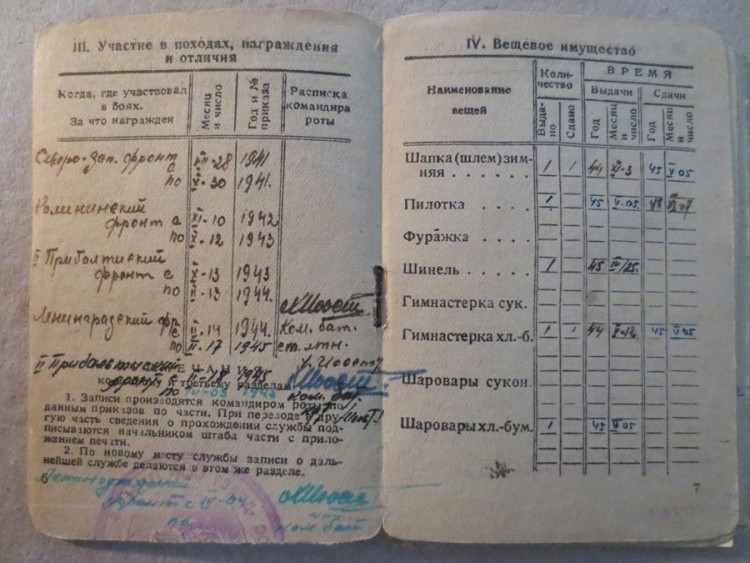 III. Участие в походах, награждения
и отличия
Когда, где участвовал
в боях.
За что награжден
Месяц
и число
Год и №
приказа
Расписка
командира
роты
Северо-Зап. фронт
с VII-28 1941
по XI-30 1941.
Калининский
фронт с XI-10 1942
по X-12 1943
II Прибалтиский
фронт с X-13 1943
по -13 1944.
Ленинградский фр.
с -14 1944. Ком. бат.
по II-17 1945 ст. лтн.
II Прибалтиский
фронт с 1945
к третьему разделу
по 1945 Ком. бат.
1. Записи производятся командиром роты на
данным приказов по части. При переводе в дру-
гую часть сведения о прохождении службы под-
писываются начальником штаба части с прило-
жением печати.
2. По новому месту службы записи о даль-
нейшей службе делаются в этом же разделе.
Ленинградский
фронт с IV-04
по
Ком бат
IV. Вещевое имущество
Наименование
вещей
Коли-
чество
ВРЕМЯ
Выдачи
Сдачи
Выда-
но
Сдано
Год
Месяц
и
число
Год
Месяц
и
число
Шапка (шлем) зим-
няя . . . . . . 1 1 44 XI-3 45 V-05
Пилотка . . . . 1 45 V-05 48
Фуражка . . . .
Шинель . . . . 1 45 IV/25
Гимнастерка сук.
Гимнастерка хл.-б. 1 1 44 X-12 45 V-05
Шаровары сукон.
Шаровары хл.-бум. 1 45 V-05
7